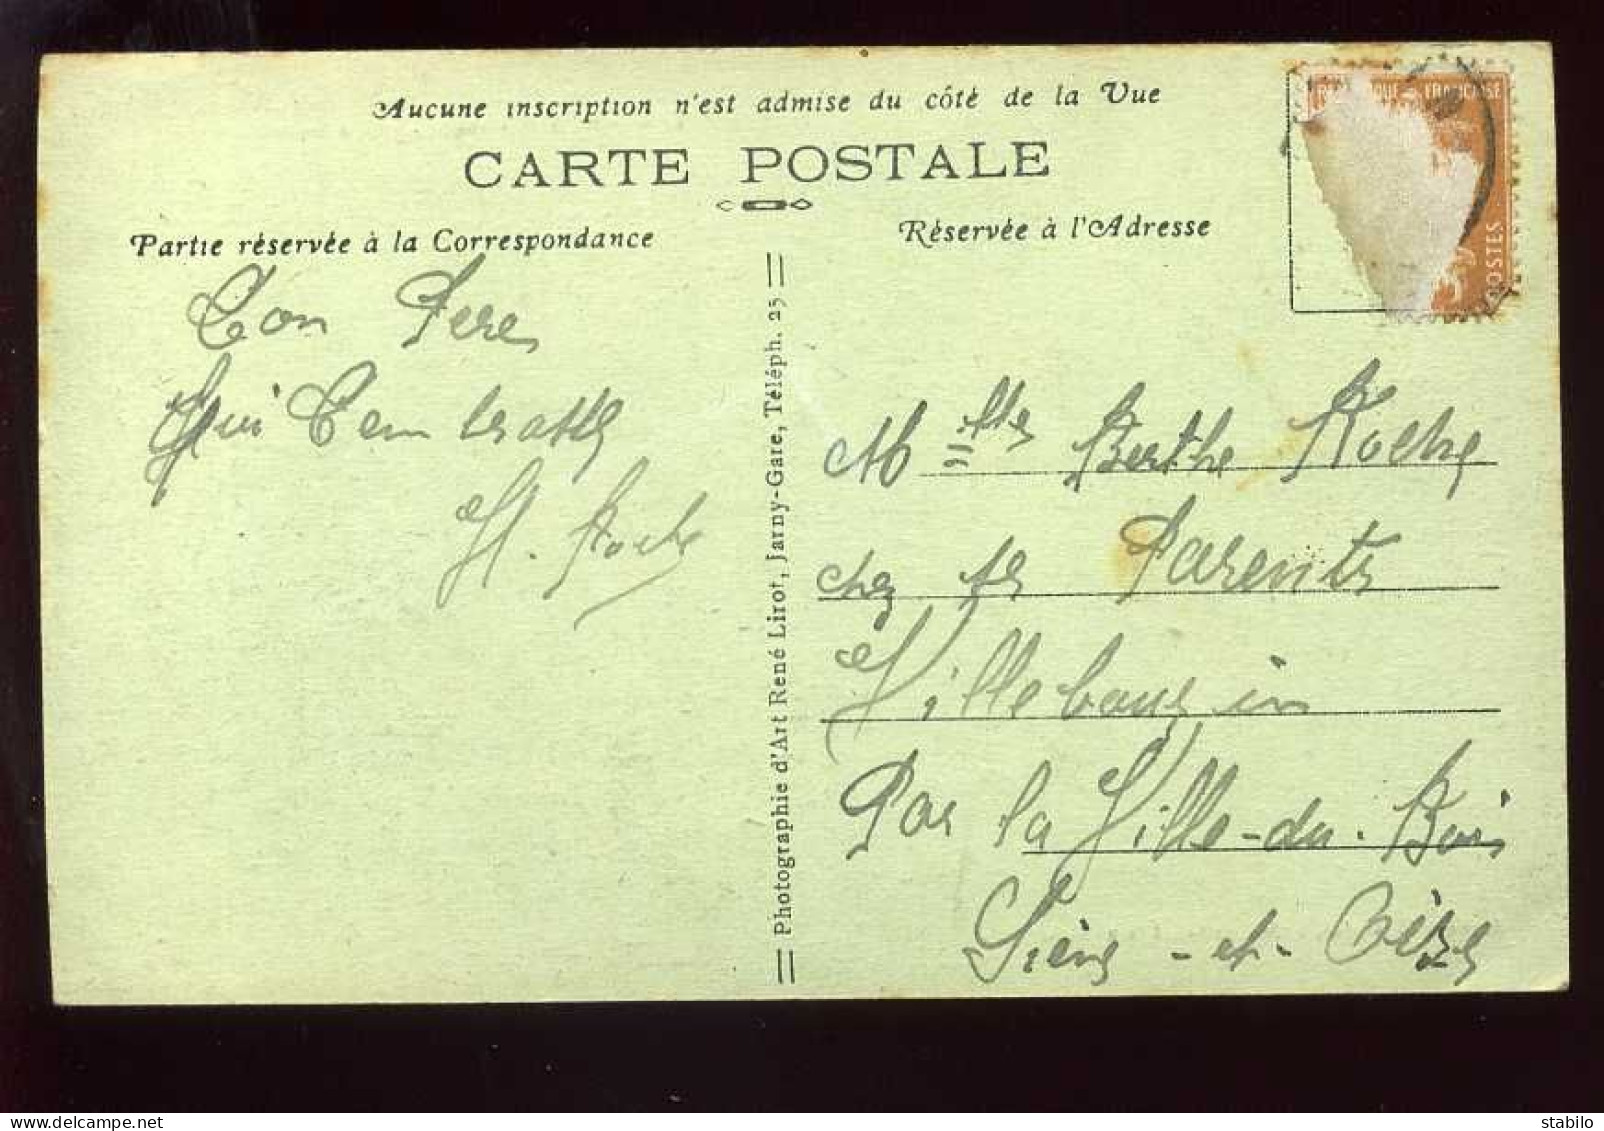 Aucune inscription n'est admise du côté de la Vue
CARTE POSTALE
Partie réservée à la Correspondance
Réservée à l'Adresse
RÉPUBLIQUE FRANÇAISE
POSTES
Ton Pere
Qui t'embrasse
H. Roche
Photographie d'Art René Lirot, Jarny-Gare, Téléph. 25
Melle Berthe Roche
chez ses Parents
Villebousin
Par la Ville-du-Bois
Seine-et-Oise
www.delcampe.net
stabilo